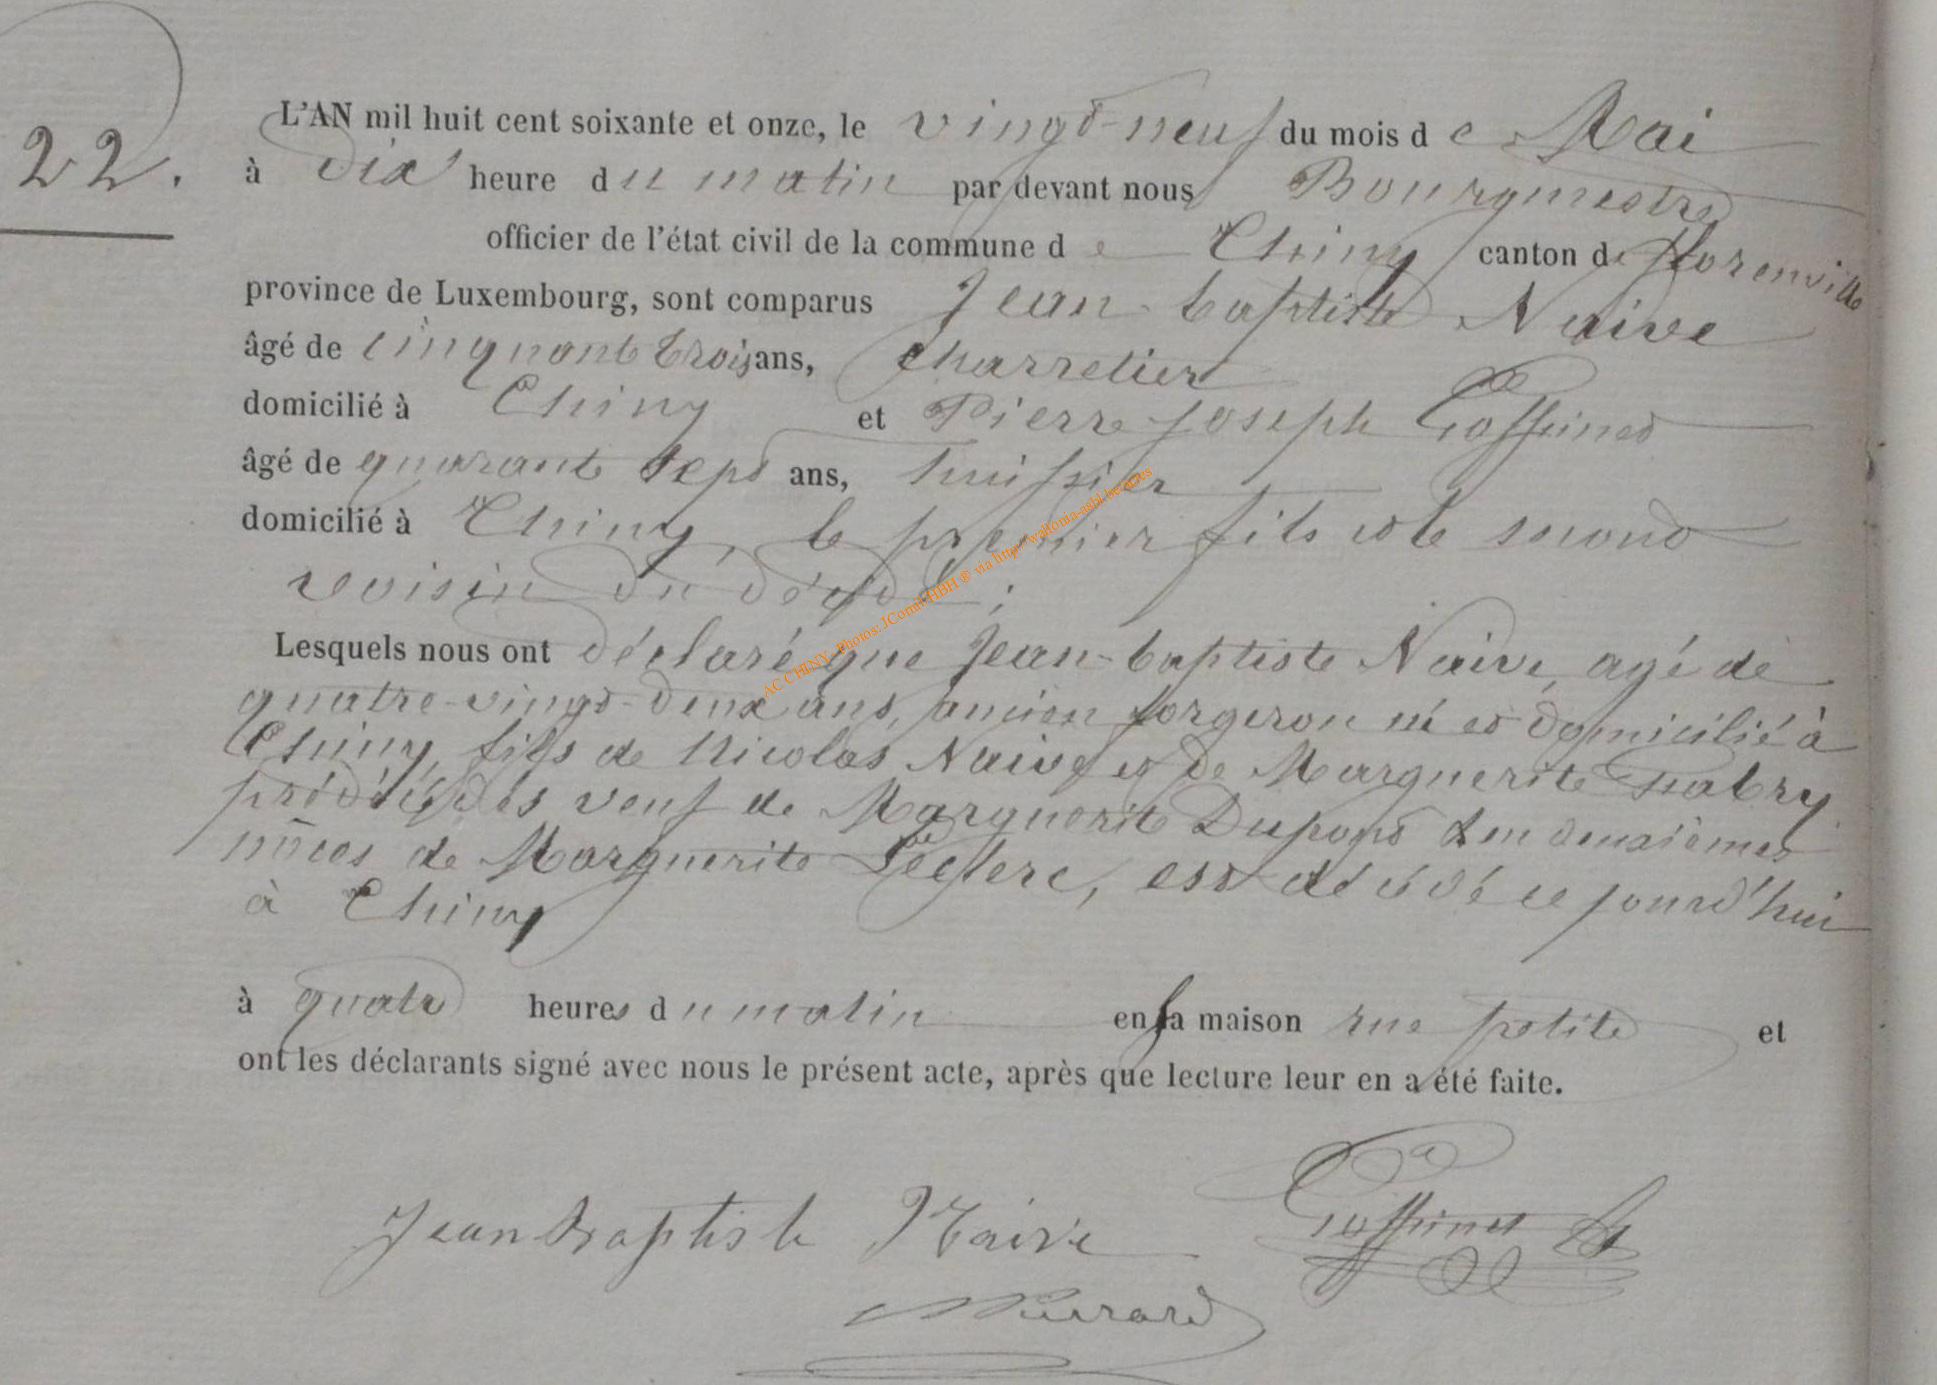 22.
L'AN mil huit cent soixante et onze, le vingt-neuf du mois de Mai
à dix heure du matin par devant nous Bourgmestre
officier de l'état civil de la commune de Chiny canton de Florenville
province de Luxembourg, sont comparus Jean-baptiste Naive
âgé de cinquante trois ans, charretier
domicilié à Chiny et Pierre-Joseph Goffinet
âgé de quarante sept ans, huissier
domicilié à Chiny, le premier fils et le second
voisin du décédé;
Lesquels nous ont déclaré que Jean-baptiste Naive, agé de
quatre-vingt-deux ans, ancien forgeron né et domicilié à
Chiny, fils de Nicolas Naive et de Marguerite
prédécédés veuf de Marguerite Dupont & en deuxièmes
nôces de Marguerite Leclerc, est décédé ce jourd'hui
à Chiny
à quatre heures du matin en sa maison rue petite et
ont les déclarants signé avec nous le présent acte, après que lecture leur en a été faite.
Jean Baptiste Naive Goffinet
AC CHINY - Photos: JComil-HBH ® via http://wallonia-asbl.be/actes